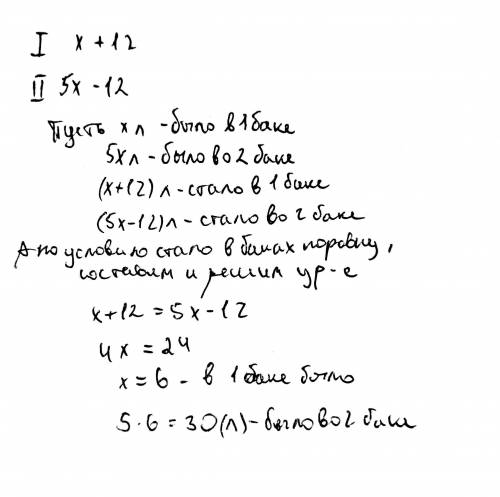 I x + 12
II 5x - 12
Пусть x л - было в 1 баке
5x л - было во 2 баке
(x+12) л - стало в 1 баке
(5x-12) л - стало во 2 баке
А по условию стало в баках поровну,
составим и решим ур-е
x+12 = 5x - 12
4x = 24
x = 6 - в 1 баке было
5 · 6 = 30 (л) - было во 2 баке